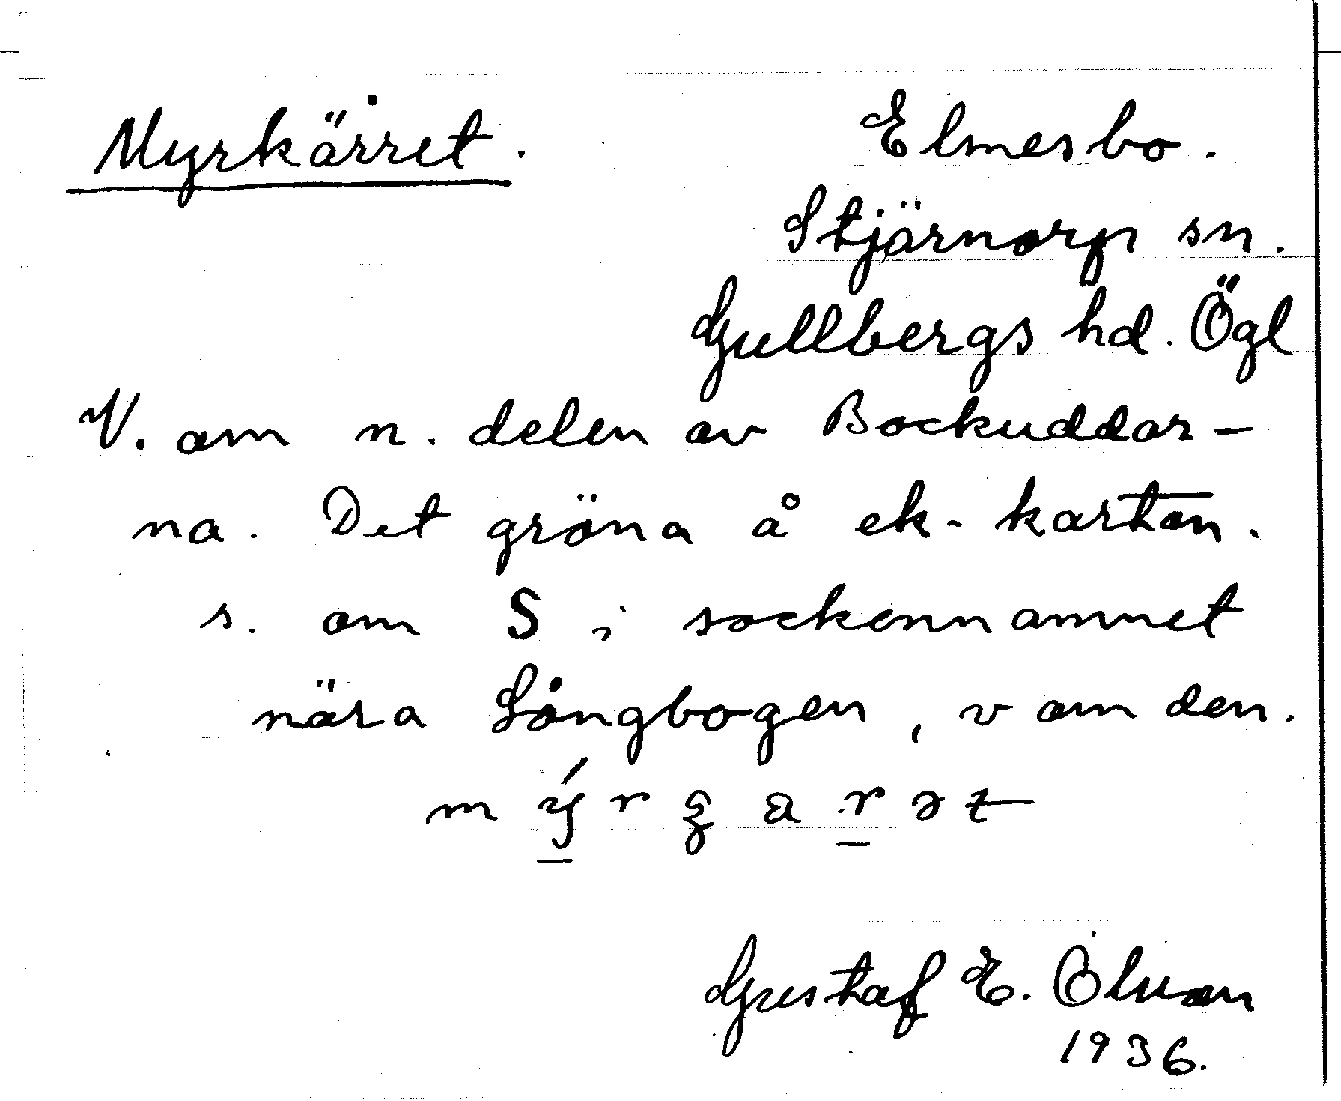 Myrkärret.
Elmesbo.
Stjärnorp sn.
Gullbergs hd. Ögl
V. om n. delen av Bockuddar-
na. Det gröna å ek-kartan.
s. om S i sockennamnet
nära Långbogen, v om den.
Gustaf E.
1936.